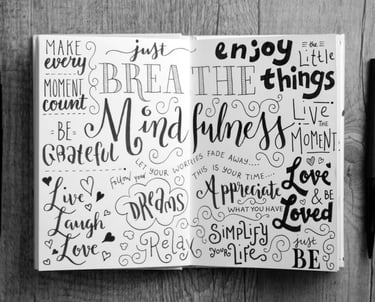 MAKE
every
MOMENT
count
just
BREATHE
enjoy
the Little
things
Mindfulness
LIVE
THE
MOMENT
BE
Grateful
LET YOUR WORRIES FADE AWAY....
THIS IS YOUR TIME...
Follow your
DREAMS
Appreciate
WHAT YOU HAVE
Love
& BE
Loved
Live
Laugh
Love
Relax
SIMPLIFY
YOUR LIFE
just
BE